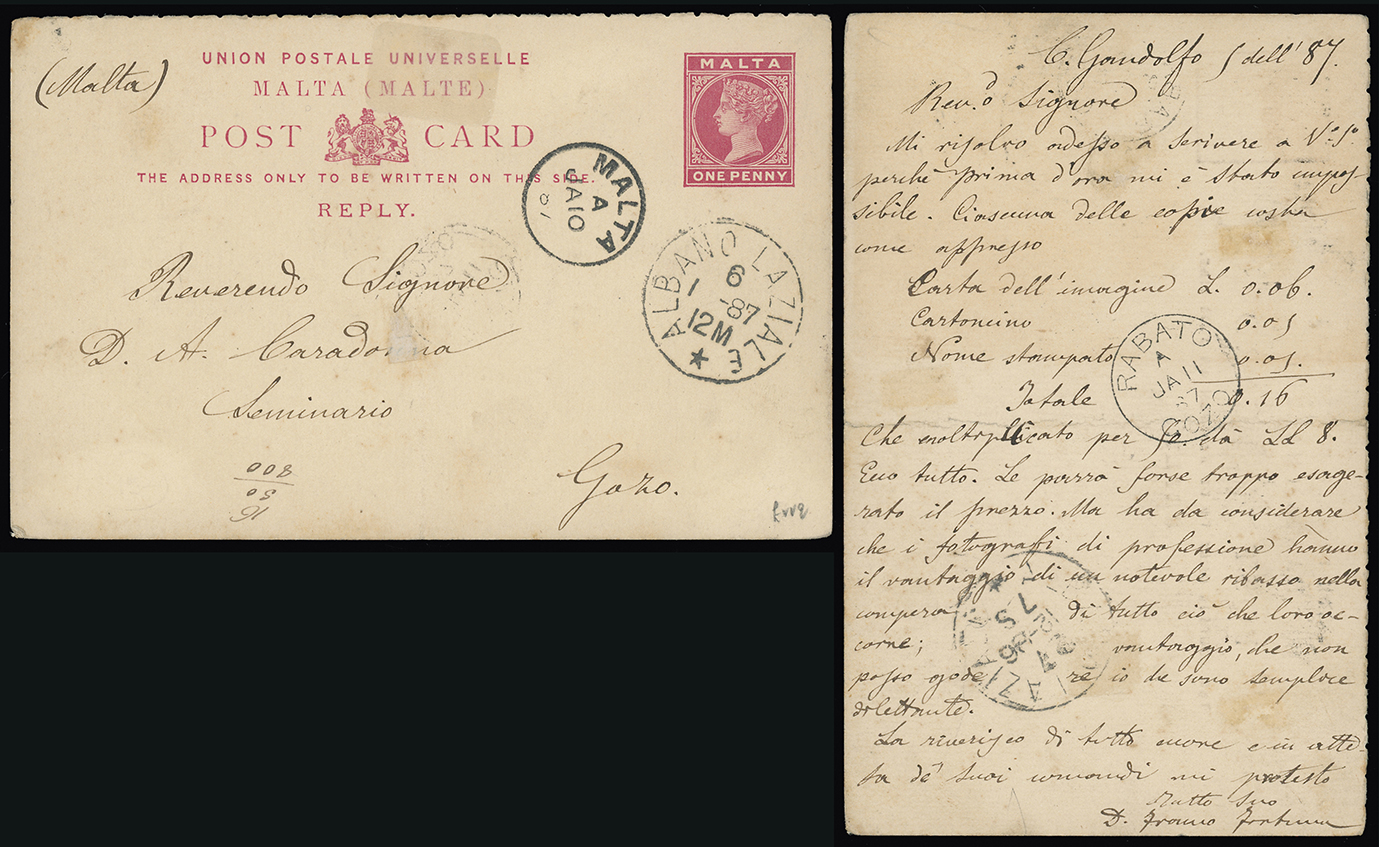 UNION POSTALE UNIVERSELLE
MALTA (MALTE)
POST CARD
THE ADDRESS ONLY TO BE WRITTEN ON THIS SIDE.
REPLY.
(Malta)
MALTA
ONE PENNY
MALTA
A
JA 10
87
ALBANO LAZIALE
6
1 -87
12M
Reverendo Signore
D. A. Caradonna
Seminario
Gozo.
16
50
800
C. Gandolfo 5 dell' 87.
Rev.o Signore
Mi risolvo adesso a scrivere a V.a S.a
perchè prima d'ora mi è stato impos-
sibile. Ciascuna delle copie costa
come appresso
Carta dell'imagine L. 0.06.
Cartoncino 0.05
Nome stampato 0.05.
Totale 0.16
RABATO
A
JA 11
87
GOZO
Che moltiplicato per 50. dà LL 8.
Ecco tutto. Le parrà forse troppo esage-
rato il prezzo. Ma ha da considerare
che i fotografi di professione hanno
il vantaggio di un notevole ribasso nella
compera di tutto ciò che loro oc-
corre; vantaggio, che non
posso gode re io che sono semplice
dilettante.
La riverisco di tutto cuore e in atte-
sa de' suoi comandi mi protesto
Tutto Suo
D. Franco Fortuna